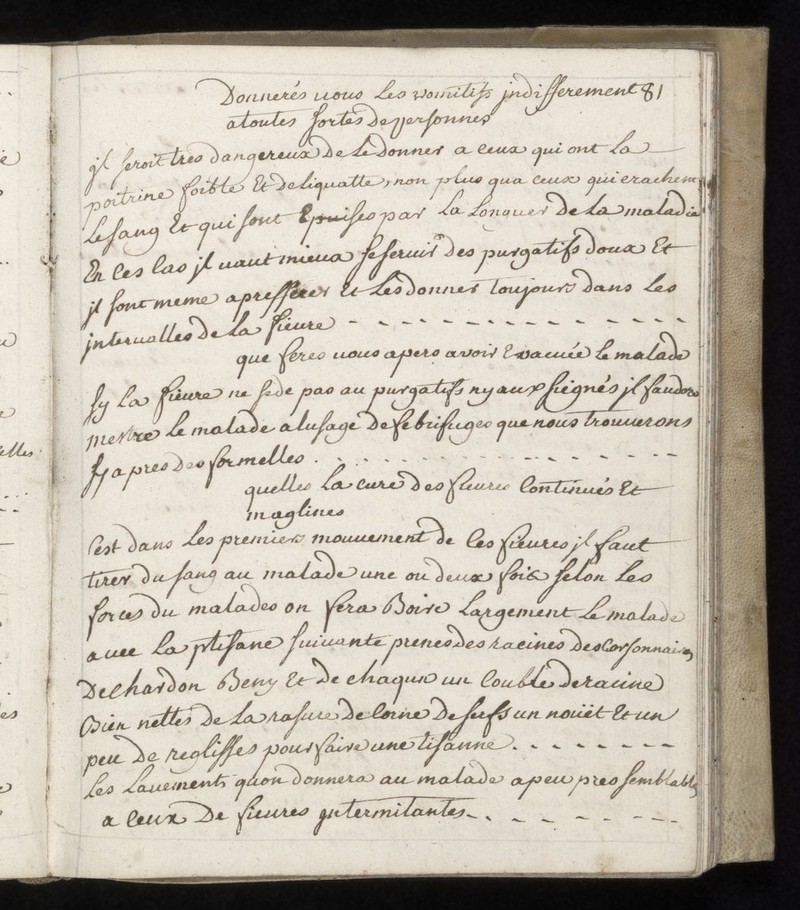 Donnerés vous Les vomitifs jndifferement 81
atoutes sortes Depersonnes
jl seroit tres dangereux De Le donner a ceux qui ont La
poitrine foible Et deliquatte, non plus qua ceux qui crachent
Le sang Et qui sont Epuises par La Longuer De La maladie
En Ces Cas jl vaut mieux se servir des purgatifs doux Et
jl sont meme a prefferer Et Les donner Toujours dans Les
jntervalles de La fievre
que feres vous apers avoir Evacuée Le malade
sy La fievre ne sede pas au purgatifs ny aux siegnés jl faudra
mettre Le malade a lusage De febrifuges que nous trouverons
sy apres des formelles
quelles La cure des fievres Continués Et
maglines
Cest dans Les premiers mouvement de Ces fievres jl faut
tirer du sang au malade une ou deux fois selon Les
forces du malades on fera Boire Largement Le malade
avec La ptisane suivante prenes des racines descorsonnaires
De Chardon Beny Et de chaqun un Couble de racine
Bien nettes De La rasure De Corne De serfs un noüet Et un
peu De reglisses pour faire une tisanne
Les Lavements quon donnera au malade a peu pres semblables
a Ceux De fievres jntermitantes
ie
elles
es